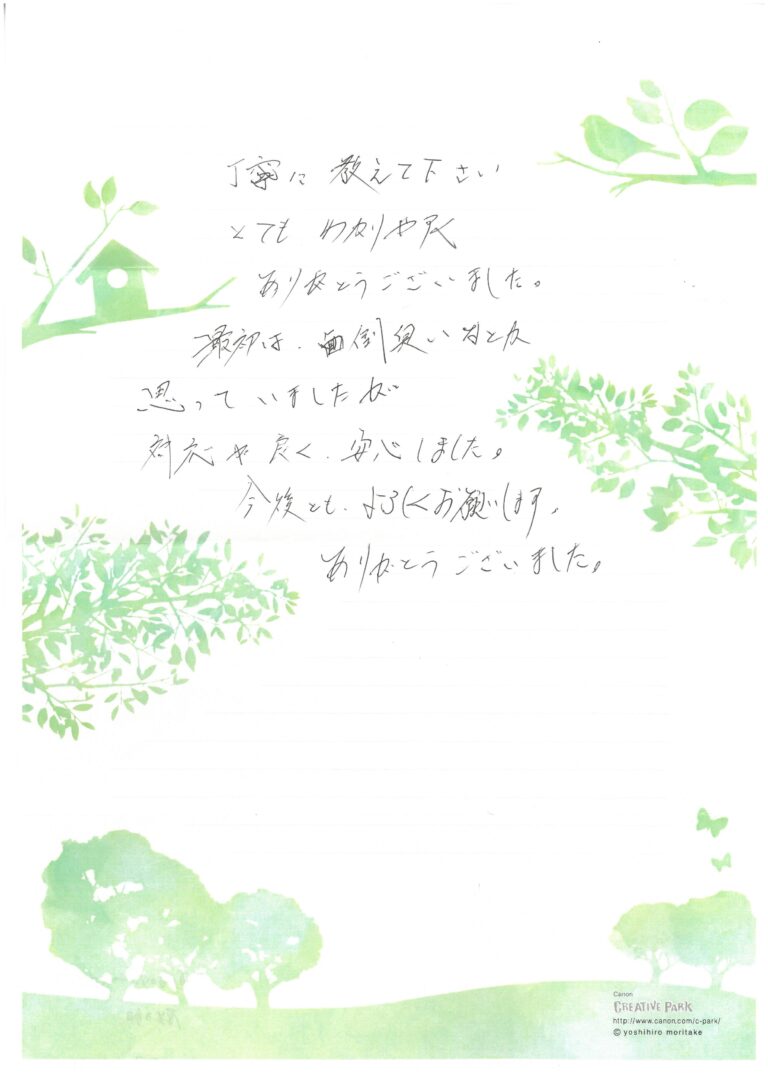 丁寧に教えて下さい
とてもわかりや尺
ありがとうございました。
最初は、面倒臭いなとか
思っていましたが
対応が良く、安心しました。
今後とも、よろしくお願いします。
ありがとうございました。
Canon
CREATIVE PARK
http://www.canon.com/c-park/
© yoshihiro moritake